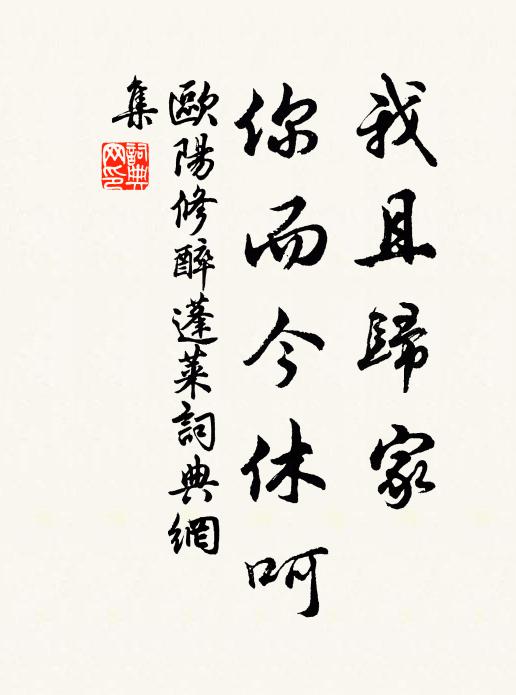 我且歸家
你而今休呵
歐陽修醉蓬萊詞典網
集
詞典
网印